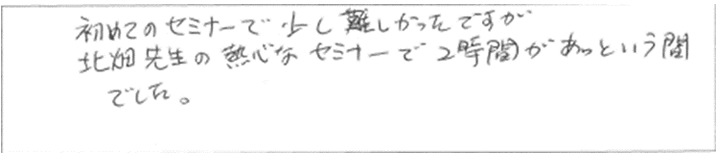 初めてのセミナーで少し難しかったですが
北畑先生の熱心なセミナーで2時間があっという間
でした。